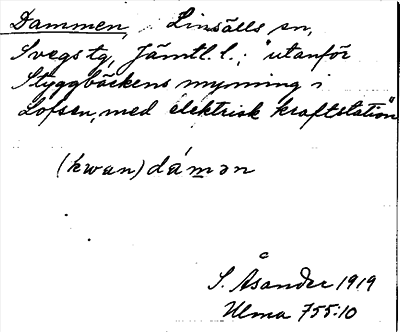 Dammen, Linsälls sn,
Svegs tg, Jämtl. l.; "utanför
Styggbäckens mynning i
Lofsen, med elektrisk kraftstation"
(kwan) dámən
S. Åsander 1919
Ulma 755:10